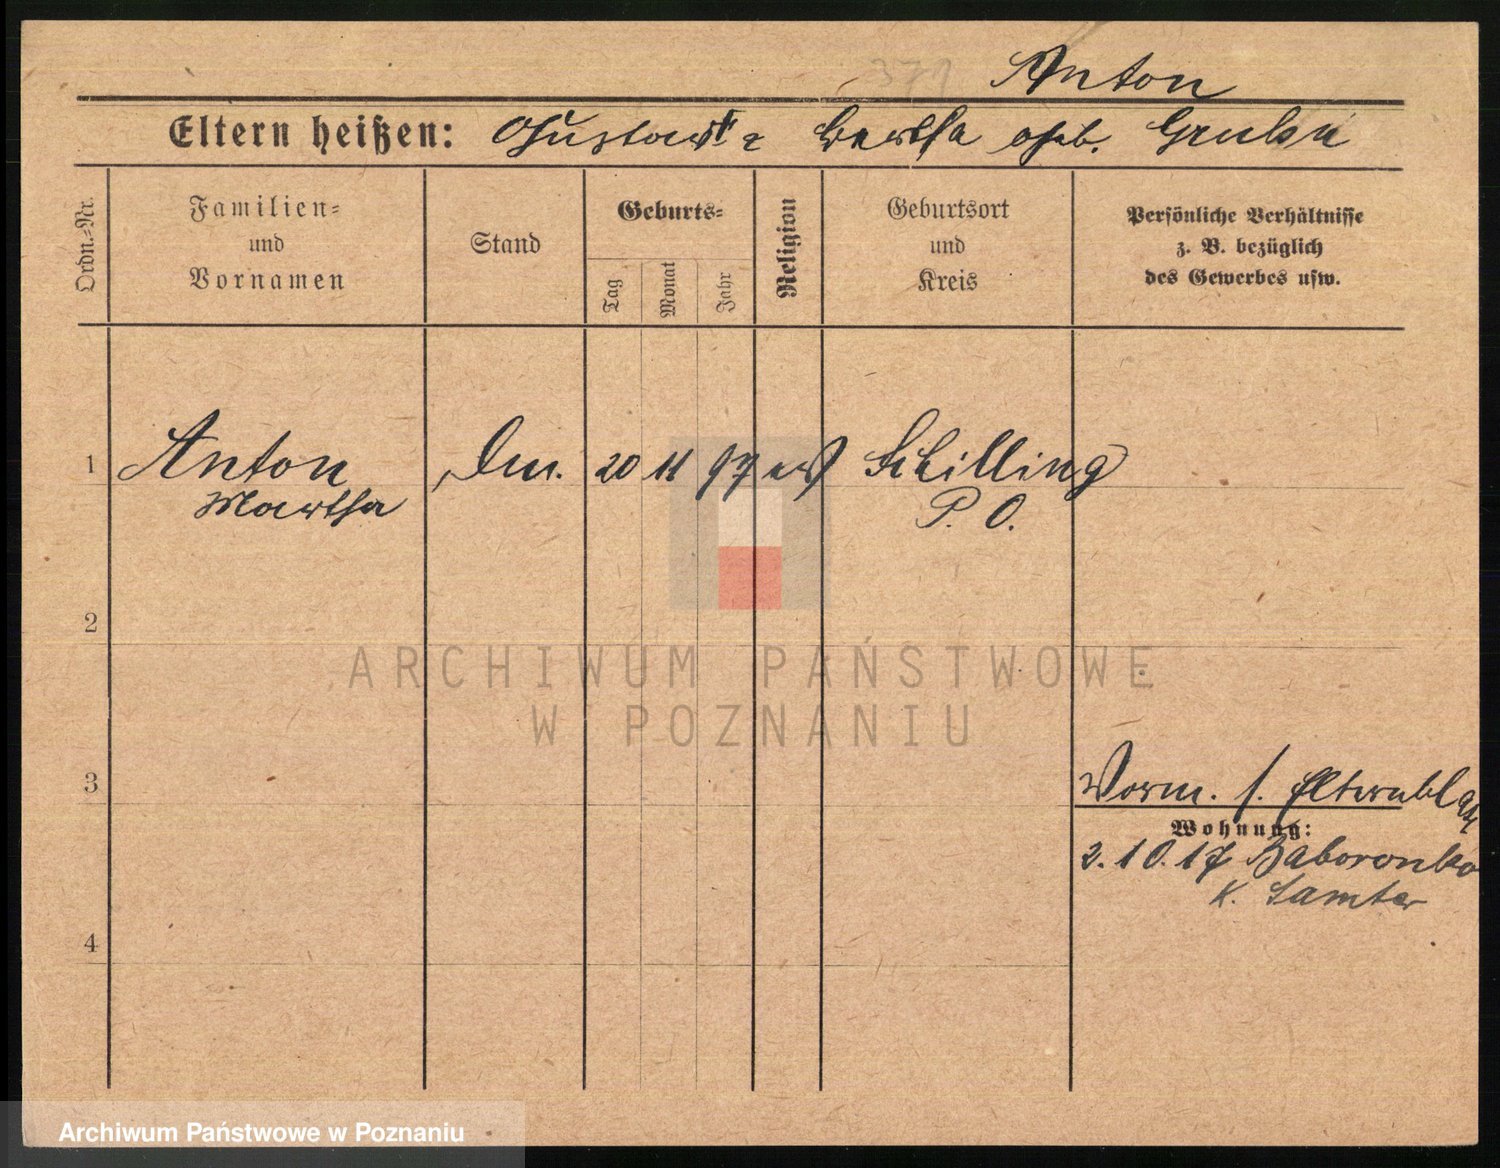 371
Anton
Eltern heißen: Gustav & Bertha geb.
Ordn.-Nr.
Familien-
und
Vornamen
Stand
Geburts-
Tag
Monat
Jahr
Religion
Geburtsort
und
Kreis
Persönliche Verhältnisse
z. B. bezüglich
des Gewerbes usw.
1 Anton 20 11 97 Schilling
Martha P. O.
2
3
Vorm. s. Elternblatt
Wohnung:
2.10.17 Baborowko
K. Samter
4
ARCHIWUM PAŃSTWOWE
W POZNANIU
Archiwum Państwowe w Poznaniu